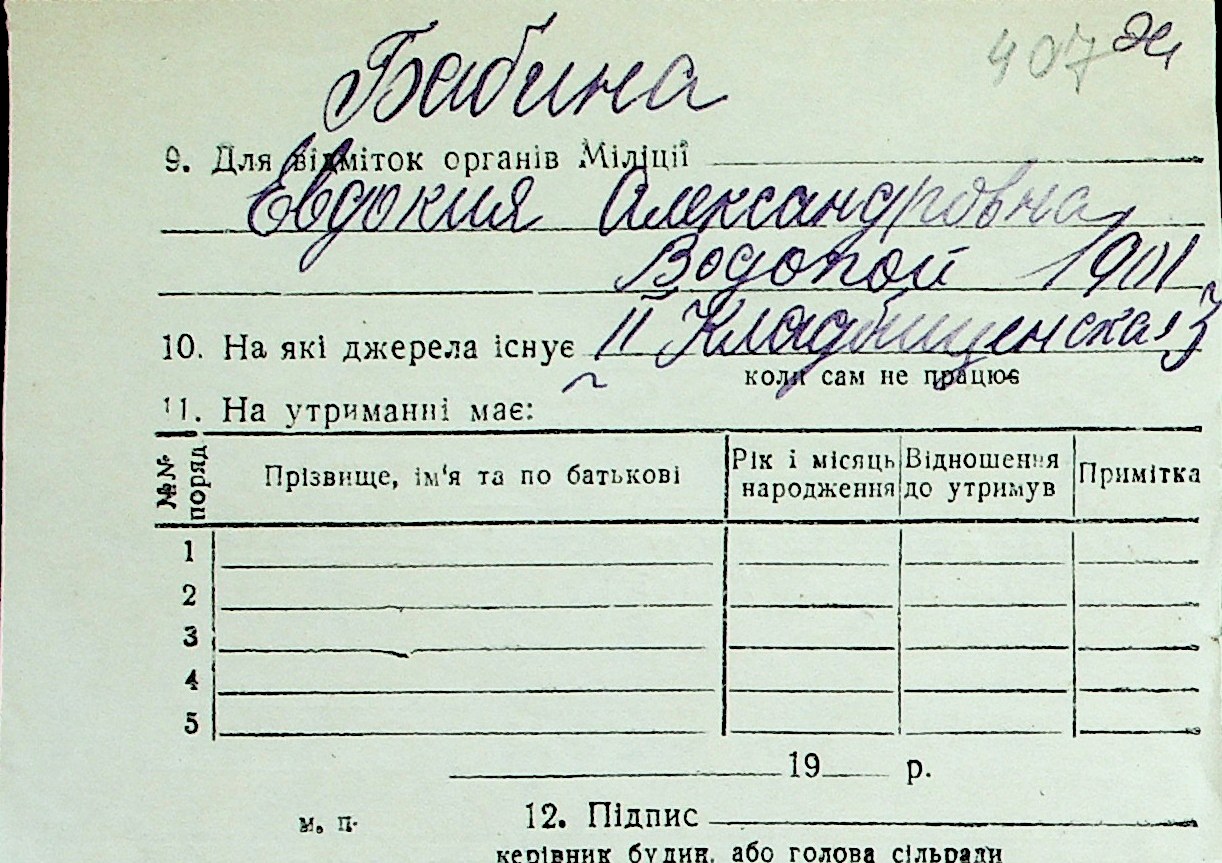 407
Бабина
9. Для відміток органів Міліції
Евдокия Александровна
Водопой 1901
10. На які джерела існує II Кладбищенская 3
коли сам не працює
11. На утриманні має:
№№ поряд Прізвище, ім'я та по батькові Рік і місяць народження Відношення до утримув Примітка
1
2
3
4
5
19 р.
м. п. 12. Підпис
керівник будин. або голова сільради